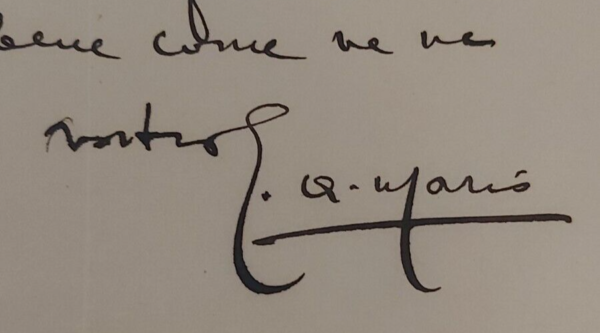 bene come ve ne
vostro E. A. Mario